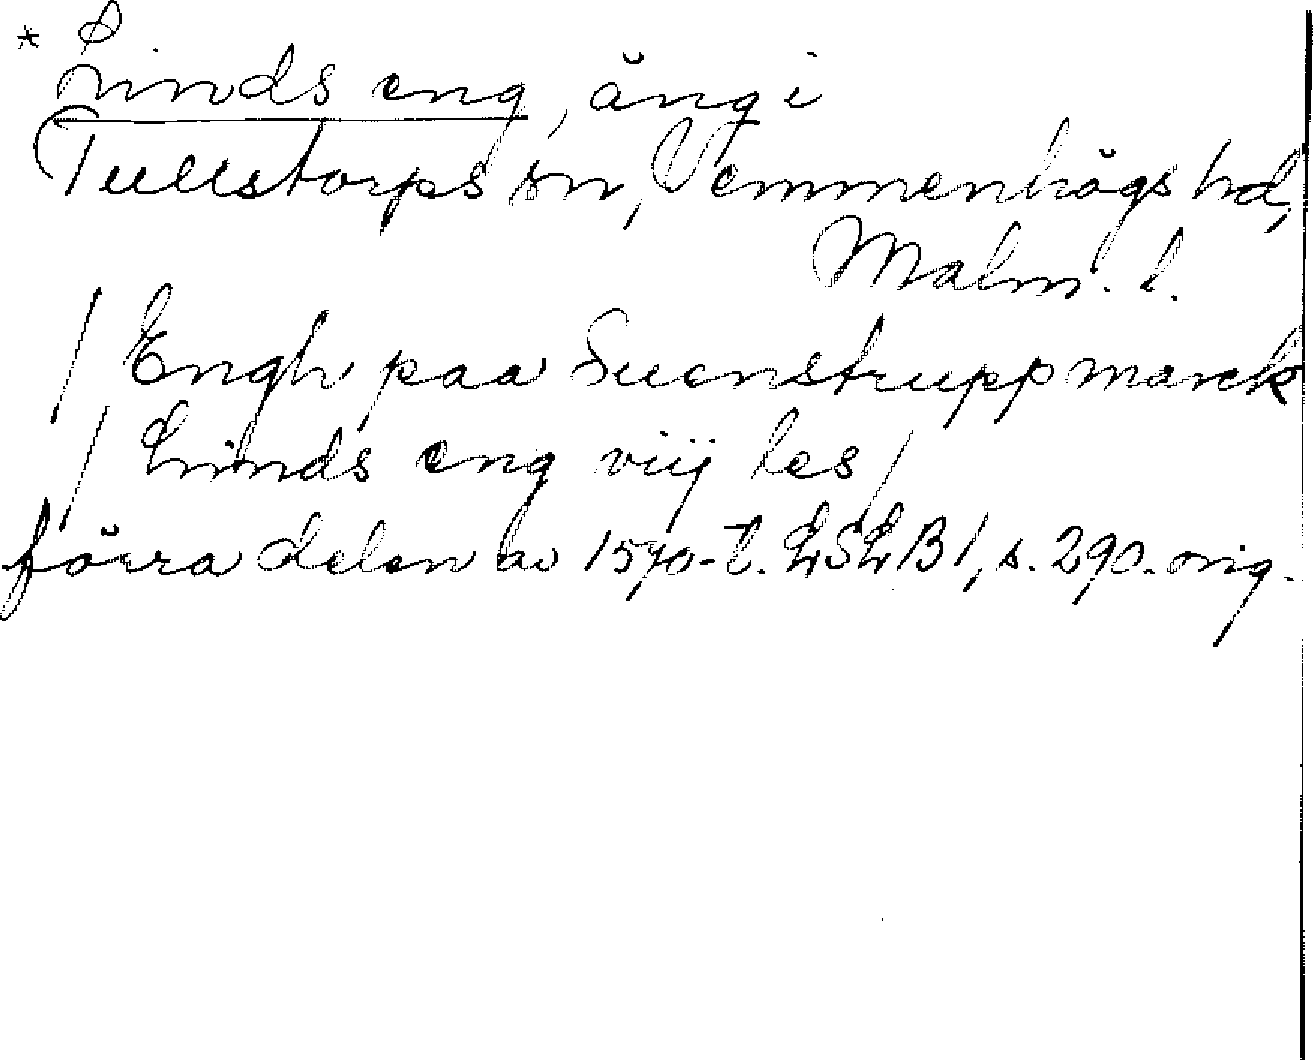 * Linds eng, äng i
Tullstorps sn, Vemmenhögs hd,
Malm. l.
/ Engh paa Suenstrupp marck
/ Linds eng viij les /
förra delen av 1570-t. LSLB 1, s. 290. orig.